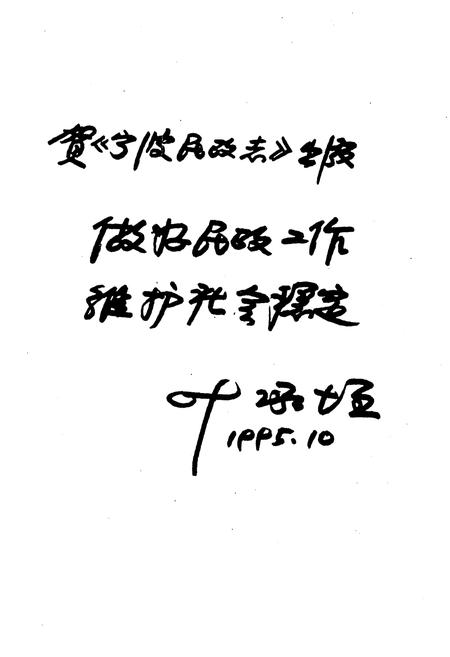 贺《宁波民政志》出版
做好民政工作
维护社会稳定
叶承垣
1995.10